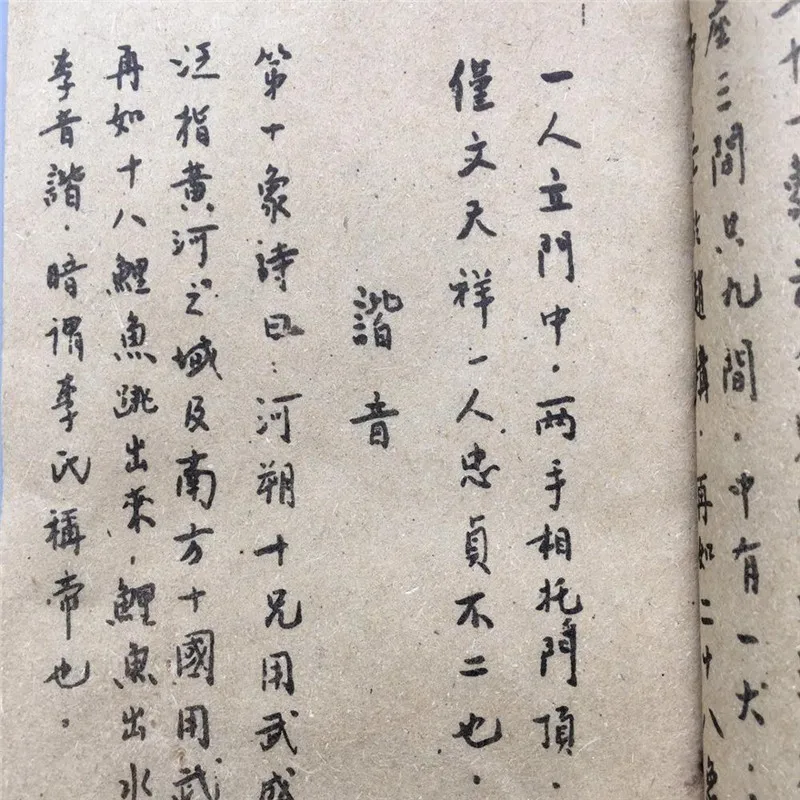 座三間共九間．中有一犬：
再如二十八
一人立門中．兩手相托門頂．
僅文天祥一人忠貞不二也．
諧音
第十象詩曰：河朔十兄用武
泛指黃河之域及南方十國用武
再如十八鯉魚跳出來，鯉魚出水
李音諧．暗謂李氏稱帝也。